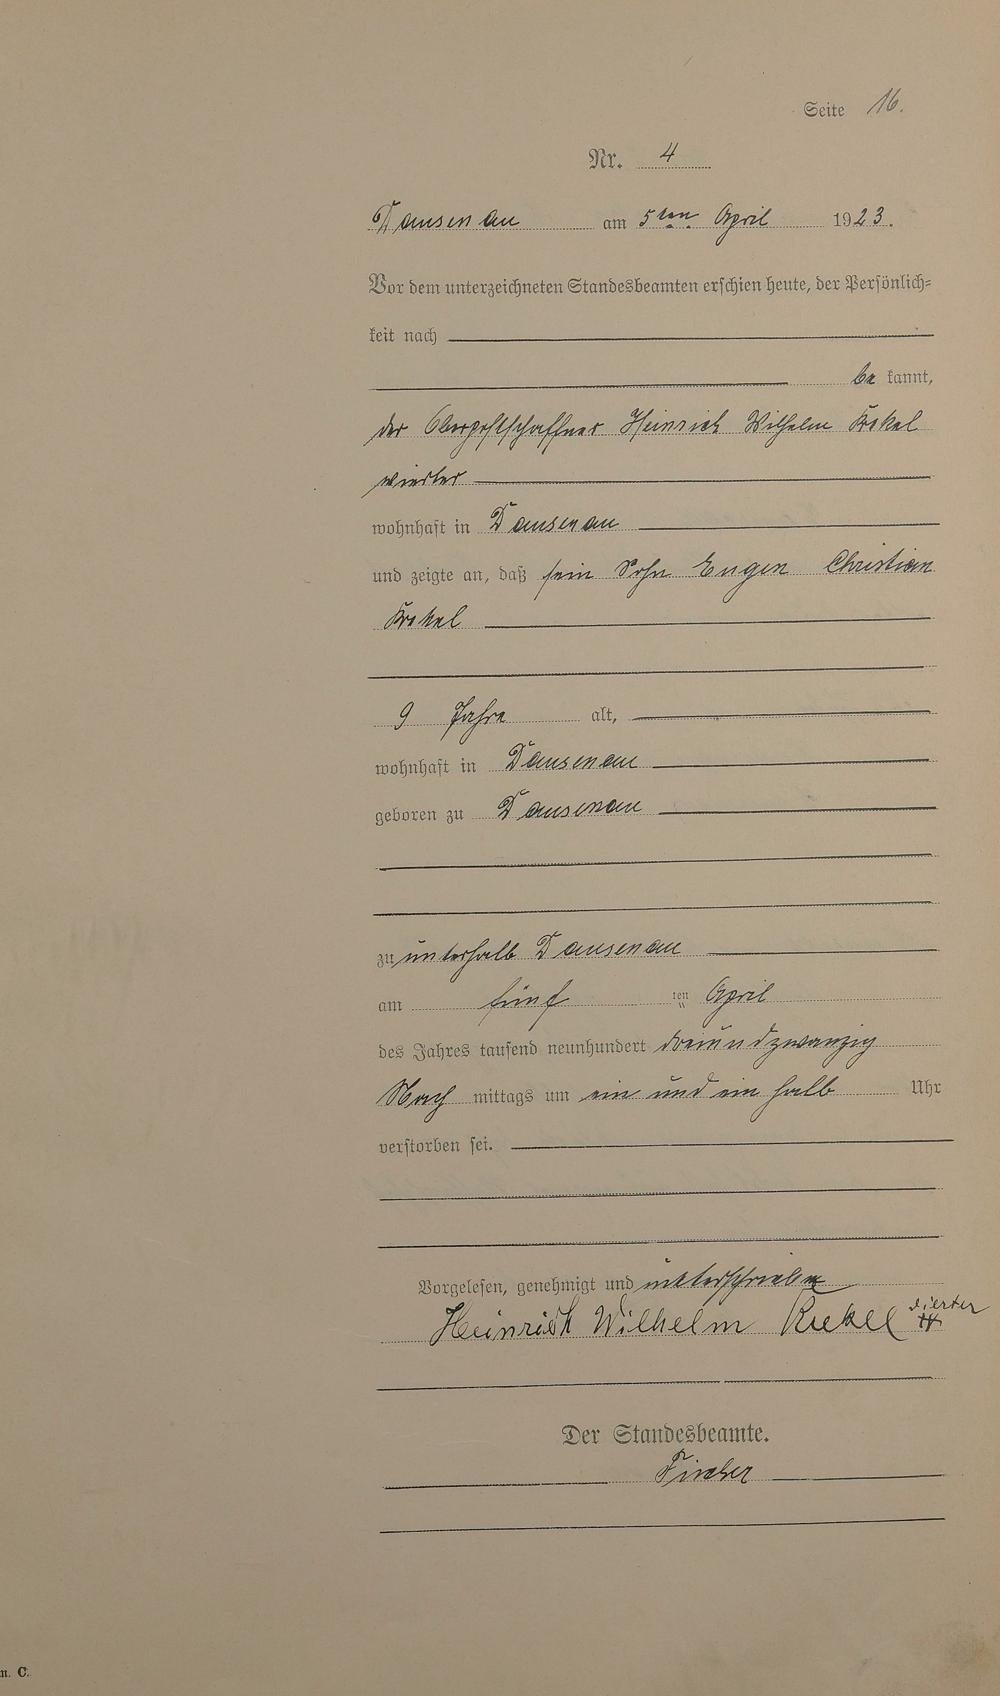 Seite 16.
Nr. 4
Dausenau am 5ten April 1923.
Vor dem unterzeichneten Standesbeamten erschien heute, der Persönlich-
keit nach
be kannt,
der Oberpostschaffner Heinrich Wilhelm Krekel
vierter
wohnhaft in Dausenau
und zeigte an, daß sein Sohn Eugen Christian
Krekel
9 Jahre alt,
wohnhaft in Dausenau
geboren zu Dausenau
zu unterhalb Dausenau
am fünf ten April
des Jahres tausend neunhundert dreiundzwanzig
Nach mittags um ein und ein halb Uhr
verstorben sei.
Vorgelesen, genehmigt und unterschrieben
Heinrich Wilhelm Krekel vierter
Der Standesbeamte.
n. C.